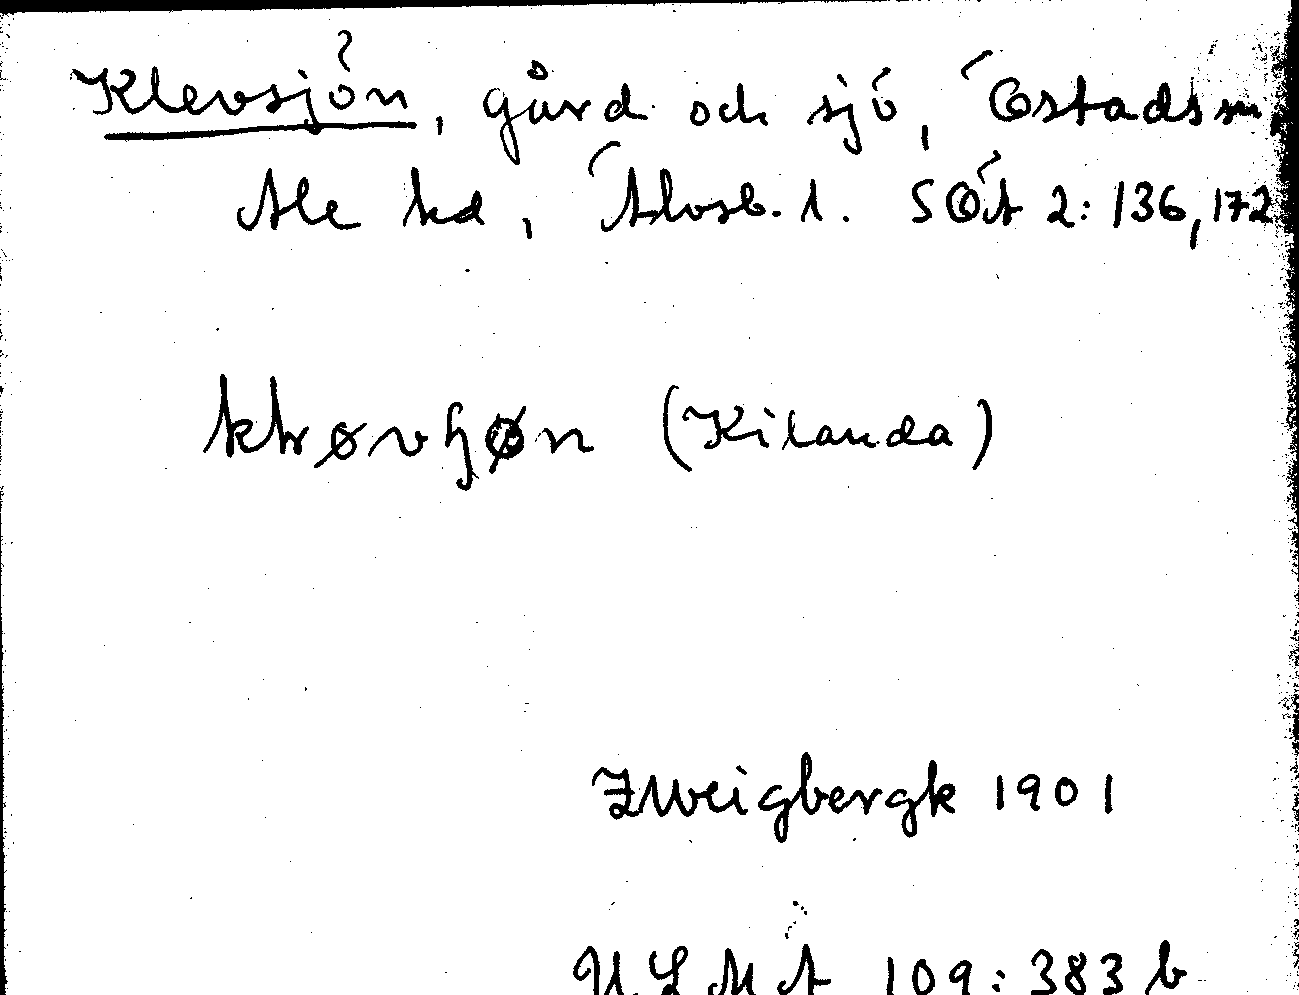 Klevsjön, gård och sjö, Östads sn,
Ale hd, Älvsb. l. SOÄ 2: 136, 172
(Kilanda)
Zweigbergk 1901
ULMA 109: 383 b